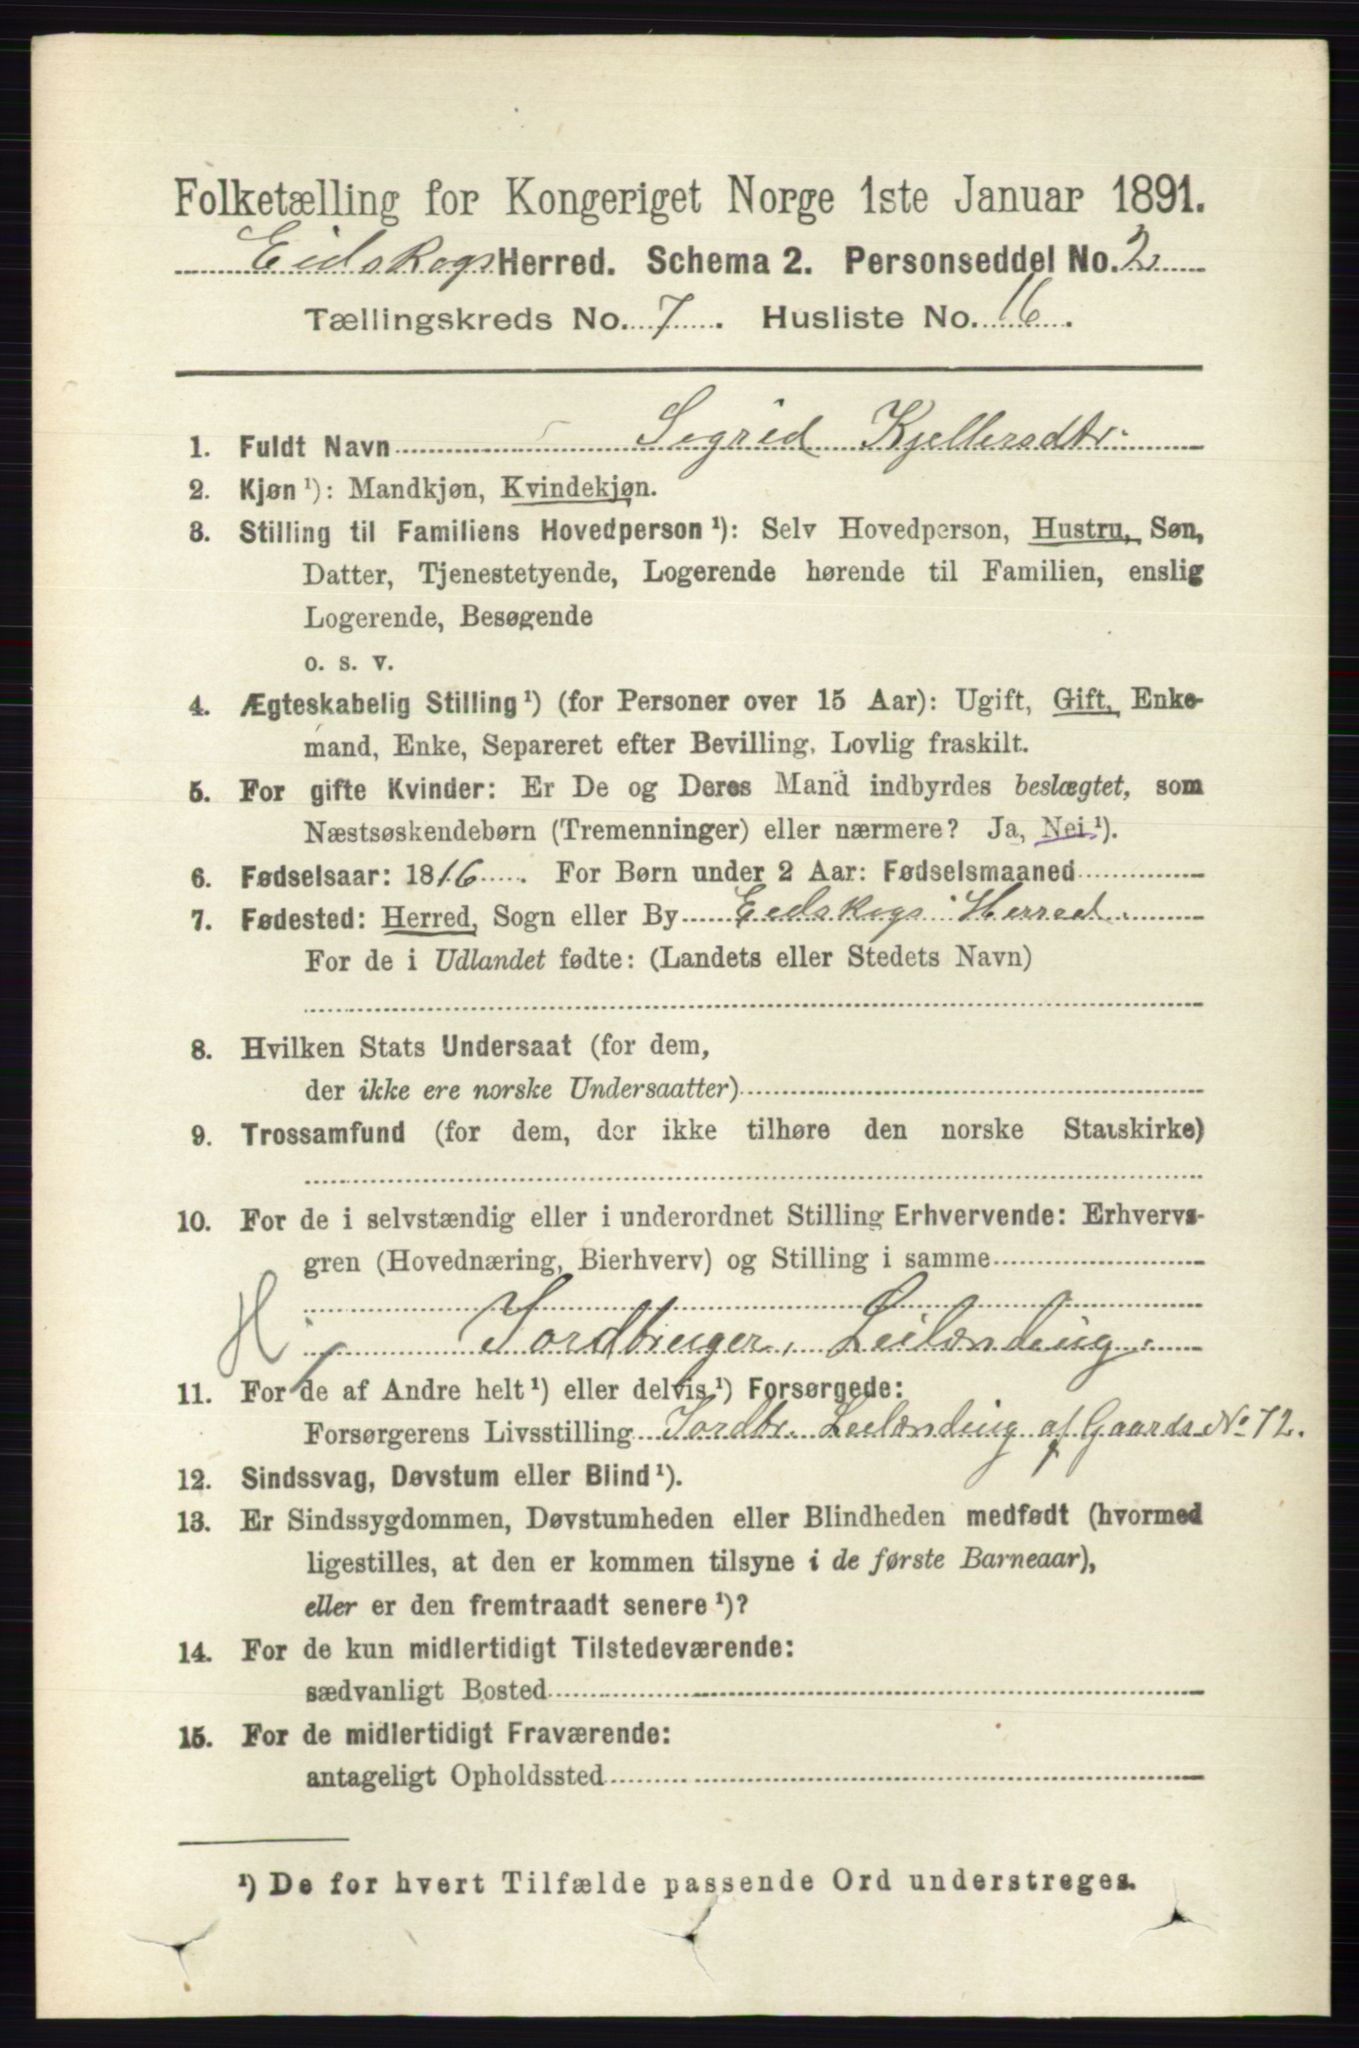 Folketælling for Kongeriget Norge 1ste Januar 1891.
Eidskogs Herred. Schema 2. Personseddel No. 2
Tællingskreds No. 7. Husliste No. 16.
1. Fuldt Navn Sigrid Kjellersdtr.
2. Kjøn ¹): Mandkjøn, Kvindekjøn.
3. Stilling til Familiens Hovedperson ¹): Selv Hovedperson, Hustru, Søn,
Datter, Tjenestetyende, Logerende hørende til Familien, enslig
Logerende, Besøgende
o. s. v.
4. Ægteskabelig Stilling ¹) (for Personer over 15 Aar): Ugift, Gift, Enke-
mand, Enke, Separeret efter Bevilling, Lovlig fraskilt.
5. For gifte Kvinder: Er De og Deres Mand indbyrdes beslægtet, som
Næstsøskendebørn (Tremenninger) eller nærmere? Ja, Nei ¹).
6. Fødselsaar: 1816. For Børn under 2 Aar: Fødselsmaaned
7. Fødested: Herred, Sogn eller By Eidskogs Herred.
For de i Udlandet fødte: (Landets eller Stedets Navn)
8. Hvilken Stats Undersaat (for dem,
der ikke ere norske Undersaatter)
9. Trossamfund (for dem, der ikke tilhøre den norske Statskirke)
10. For de i selvstændig eller i underordnet Stilling Erhvervende: Erhvervs-
gren (Hovednæring, Bierhverv) og Stilling i samme
H Jordbruger, Leilænding.
11. For de af Andre helt ¹) eller delvis ¹) Forsørgede:
Forsørgerens Livsstilling Jordbr. Leilænding af Gaards No 72.
12. Sindssvag, Døvstum eller Blind ¹).
13. Er Sindssygdommen, Døvstumheden eller Blindheden medfødt (hvormed
ligestilles, at den er kommen tilsyne i de første Barneaar),
eller er den fremtraadt senere ¹)?
14. For de kun midlertidigt Tilstedeværende:
sædvanligt Bosted
15. For de midlertidigt Fraværende:
antageligt Opholdssted
¹) De for hvert Tilfælde passende Ord understreges.